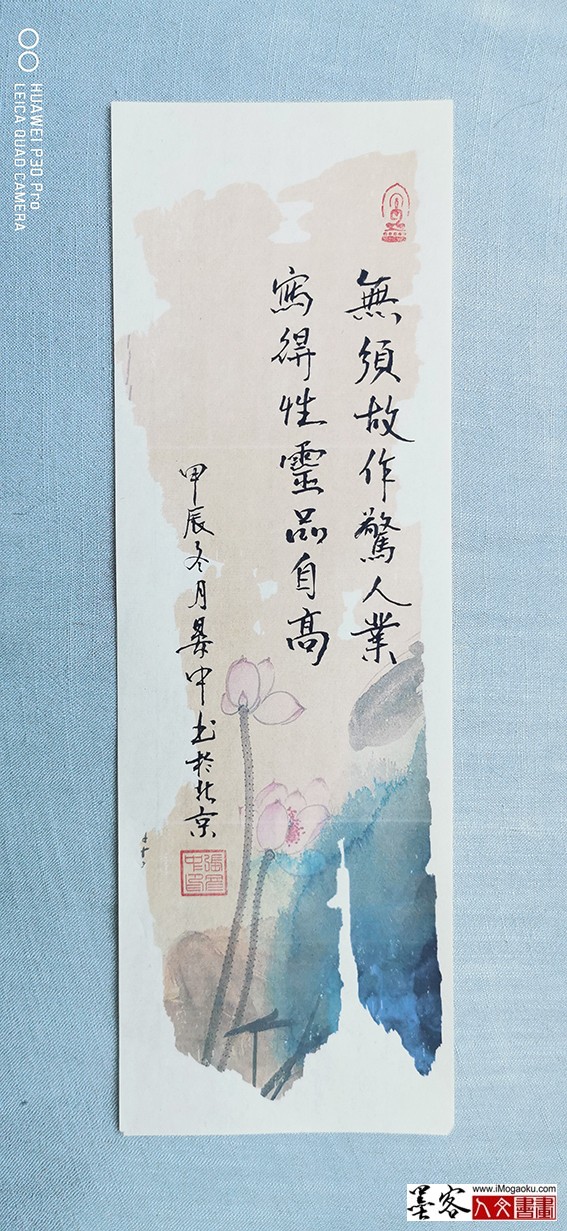 無須故作驚人業
寫得性靈品自高
甲辰冬月中书於北京
HUAWEI P30 Pro
LEICA QUAD CAMERA
www.iMogaoku.com
墨客人文書畫